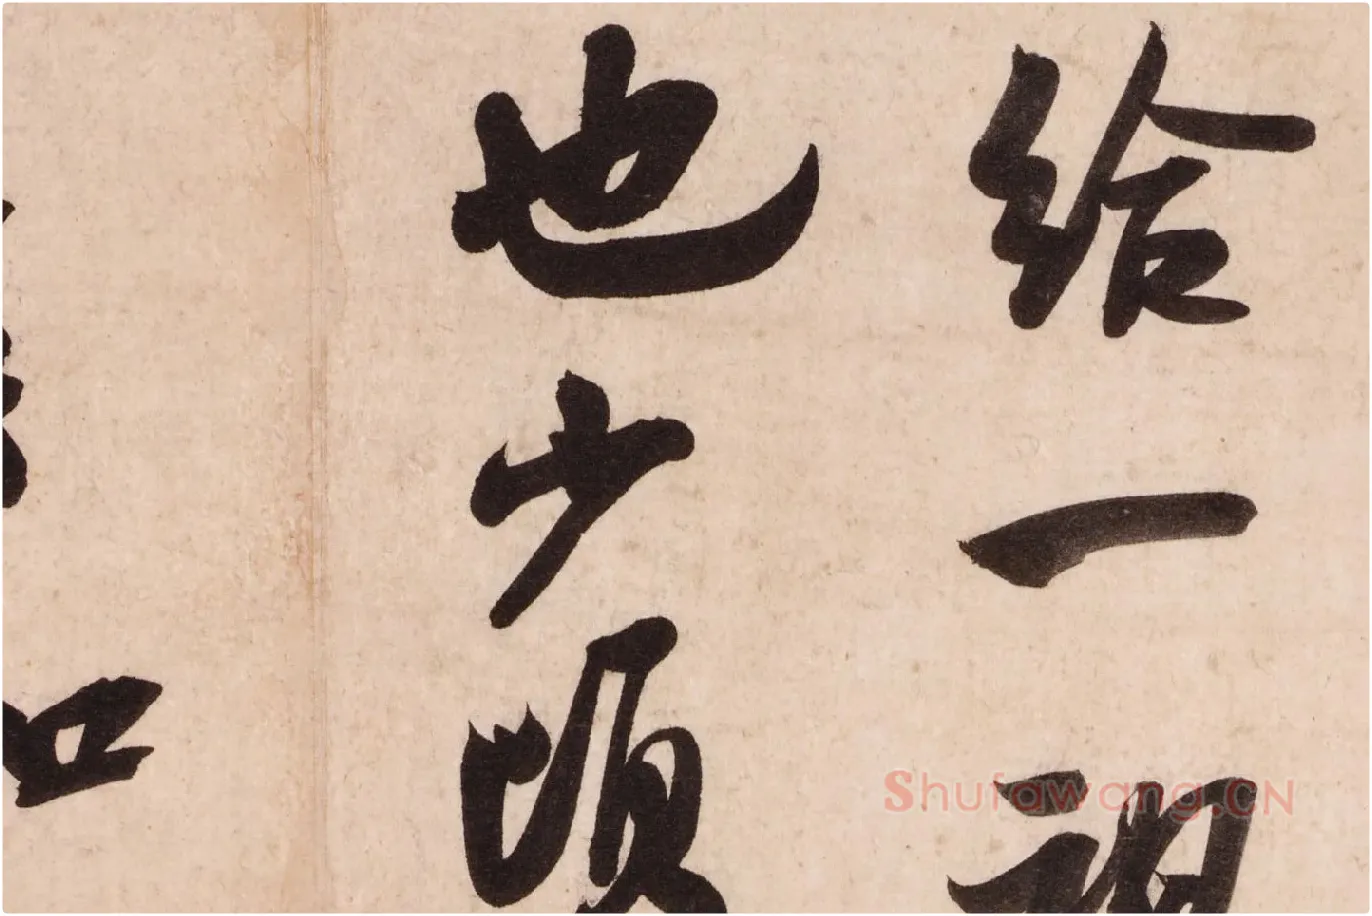 給一
也少頃
Shufawang.CN